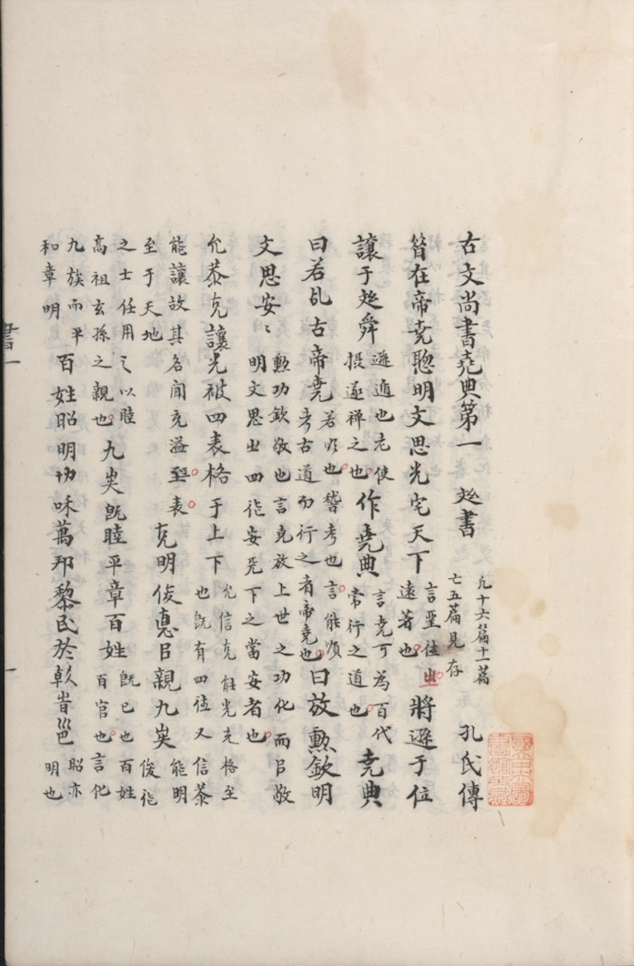 古文尚書堯典第一 虞書 凡十六篇十一篇
亡五篇見存 孔氏傳
昔在帝堯聰明文思光宅天下 言聖德㞢
遠著也 將遜于位
讓于虞舜 遜遁也老使
攝遂禅之也 作堯典 言堯可為百代
常行之道也 堯典
曰若乩古帝堯 若順也稽考也言能順
考古道而行之者帝堯也 曰放勲欽明
文思安〻 勲功欽敬也言堯放上世之功化而㠯敬
明文思㞢四德安天下之當安者也
允恭克讓光被四表格于上下 允信克能光充格至
也既有四德又信恭
能讓故其名聞充溢四表
至于天地 克明俊悳㠯親九族 能明
俊德
之士任用之以睦
高祖玄孫之親也 九族既睦平章百姓 既已也百姓
百官也言化
九族而平
和章明 百姓昭明叶咊萬邦黎民於變旹邕 昭亦
明也
書一
一